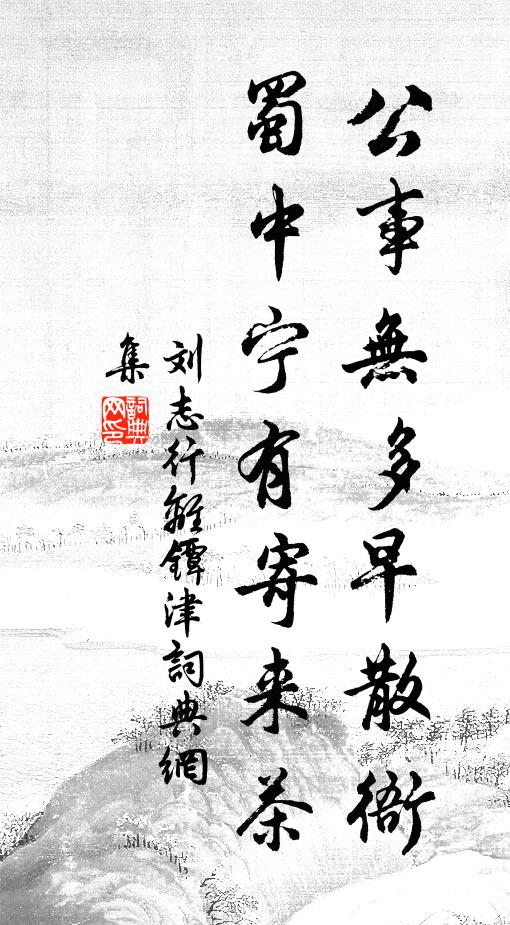 公事無多早散衙
蜀中宁有寄来茶
刘志行離鐔津詞典網
集
詞典網印